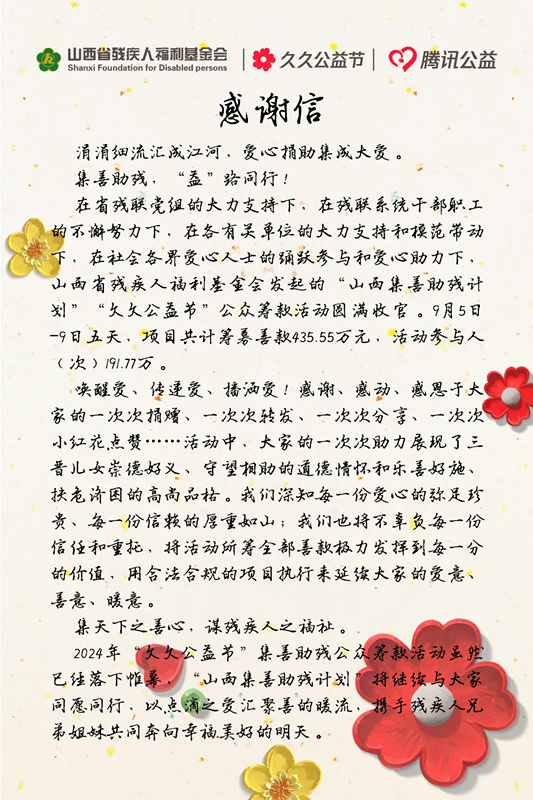 山西省残疾人福利基金会
Shanxi Foundation for Disabled persons
久久公益节
腾讯公益
感谢信
涓涓细流汇成江河，爱心捐助集成大爱。
集善助残，“益”路同行！
在省残联党组的大力支持下，在残联系统干部职工
的不懈努力下，在各有关单位的大力支持和模范带动
下，在社会各界爱心人士的踊跃参与和爱心助力下，
山西省残疾人福利基金会发起的“山西集善助残计
划”“久久公益节”公众筹款活动圆满收官。9月5日
-9日五天，项目共计筹募善款435.55万元，活动参与人
（次）191.77万。
唤醒爱、传递爱、播洒爱！感谢、感动、感恩于大
家的一次次捐赠、一次次转发、一次次分享、一次次
小红花点赞……活动中，大家的一次次助力展现了三
晋儿女崇德好义、守望相助的道德情怀和乐善好施、
扶危济困的高尚品格。我们深知每一份爱心的弥足珍
贵、每一份信赖的厚重如山；我们也将不辜负每一份
信任和重托，将活动所筹全部善款极力发挥到每一分
的价值，用合法合规的项目执行来延续大家的爱意、
善意、暖意。
集天下之善心，谋残疾人之福祉。
2024年“久久公益节”集善助残公众筹款活动虽然
已经落下帷幕，“山西集善助残计划”将继续与大家
同愿同行，以点滴之爱汇聚善的暖流，携手残疾人兄
弟姐妹共同奔向幸福美好的明天。